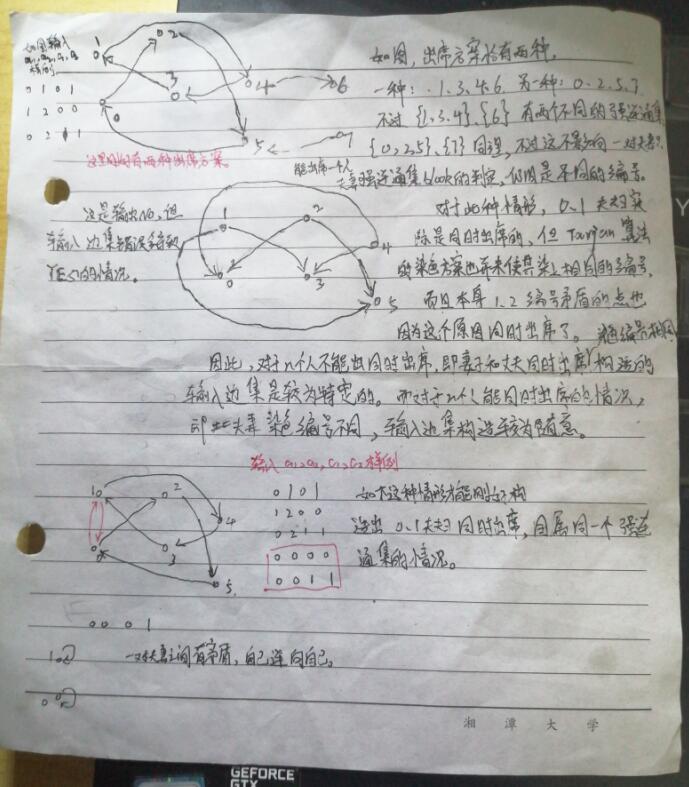 如图输入
a₁,a₂,c₁,c₂
样例
0 1 0 1
1 2 0 0
0 2 1 1
1 2 3 4 6 0 5 7
如图，出席方案恰有两种，
一种：1.3.4.6. 另一种：0.2.5.7.
不过 {1,3,4}.{6} 有两个不同的强连通集
{0,2,5}、{7}同理，不过这不影响一对夫妻只
能出席一个人
这里同时有两种出席方案。
夫妻强连通集block的判定，仍旧是不同的编号。
这是输出NO，但
输入边集错误导致
YES的情况。
1 2 4 0 3 5
对于此种情形，0.1夫妇实
际是同时出席的，但Tarjan算法
的染色方案也并未使其染上相同的编号，
而且本身1.2编号矛盾的点也
因为这个原因同时出席了。
因此，对于n个人不能出同时出席，即妻子和丈夫同时出席
输入边集是较为特定的。而对于n个人能同时出席的情况，
夫妻染色编号不同，输入边集构造较为随意。
输入a₁,a₂,c₁,c₂样例
1 2 4 0 3 5
0 1 0 1
1 2 0 0
0 2 1 1
0 0 0 0
0 0 1 1
如下这种情形才能刚好构
造出0.1夫妇同时出席，同属同一个强连
通集的情况。
0 0 0 1
1
0
一对夫妻之间有矛盾，自己连向自己。
湘潭大学
GEFORCE
GTX